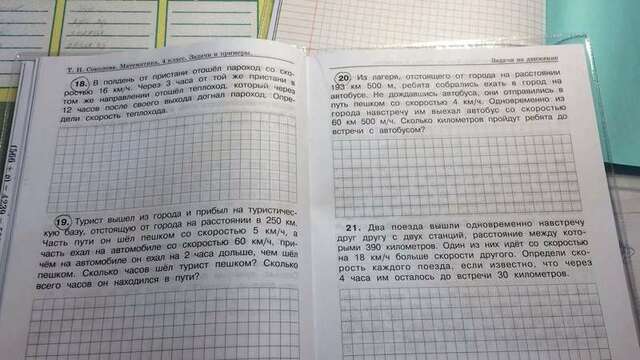 Т. Н. Соколова. Математика. 4 класс. Задачи и примеры.
18. В полдень от пристани отошёл пароход со ско-
ростью 16 км/ч. Через 3 часа от той же пристани в
том же направлении отошёл теплоход, который через
12 часов после своего выхода догнал пароход. Опре-
дели скорость теплохода.
19. Турист вышел из города и прибыл на туристичес-
кую базу, отстоящую от города на расстоянии в 250 км.
Часть пути он шёл пешком со скоростью 5 км/ч, а
часть ехал на автомобиле со скоростью 60 км/ч, при-
чём на автомобиле он ехал на 2 часа дольше, чем шёл
пешком. Сколько часов шёл турист пешком? Сколько
всего часов он находился в пути?
Задачи на движение
20. Из лагеря, отстоящего от города на расстоянии
193 км 500 м, ребята собрались ехать в город на
автобусе. Не дождавшись автобуса, они отправились в
путь пешком со скоростью 4 км/ч. Одновременно из
города навстречу им выехал автобус со скоростью
60 км 500 м/ч. Сколько километров пройдут ребята до
встречи с автобусом?
21. Два поезда вышли одновременно навстречу
друг другу с двух станций, расстояние между кото-
рыми 390 километров. Один из них идёт со скоростью
на 18 км/ч больше скорости другого. Определи ско-
рость каждого поезда, если известно, что через
4 часа им осталось до встречи 30 километров.